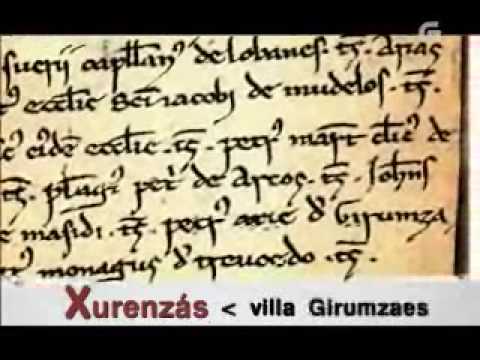 G
suerii capllan' de lobanes. ts. Arias
eccłie Sci iacobi de mudelos. ts.
eide ecclie. ts. petr' mart cłic' de
ts. pełag' pet' de Arcos. ts. Johns
masidi. ts. petr' arie d' Girumza
monagus d' trevoedo. ts.
Xurenzás < villa Girumzaes